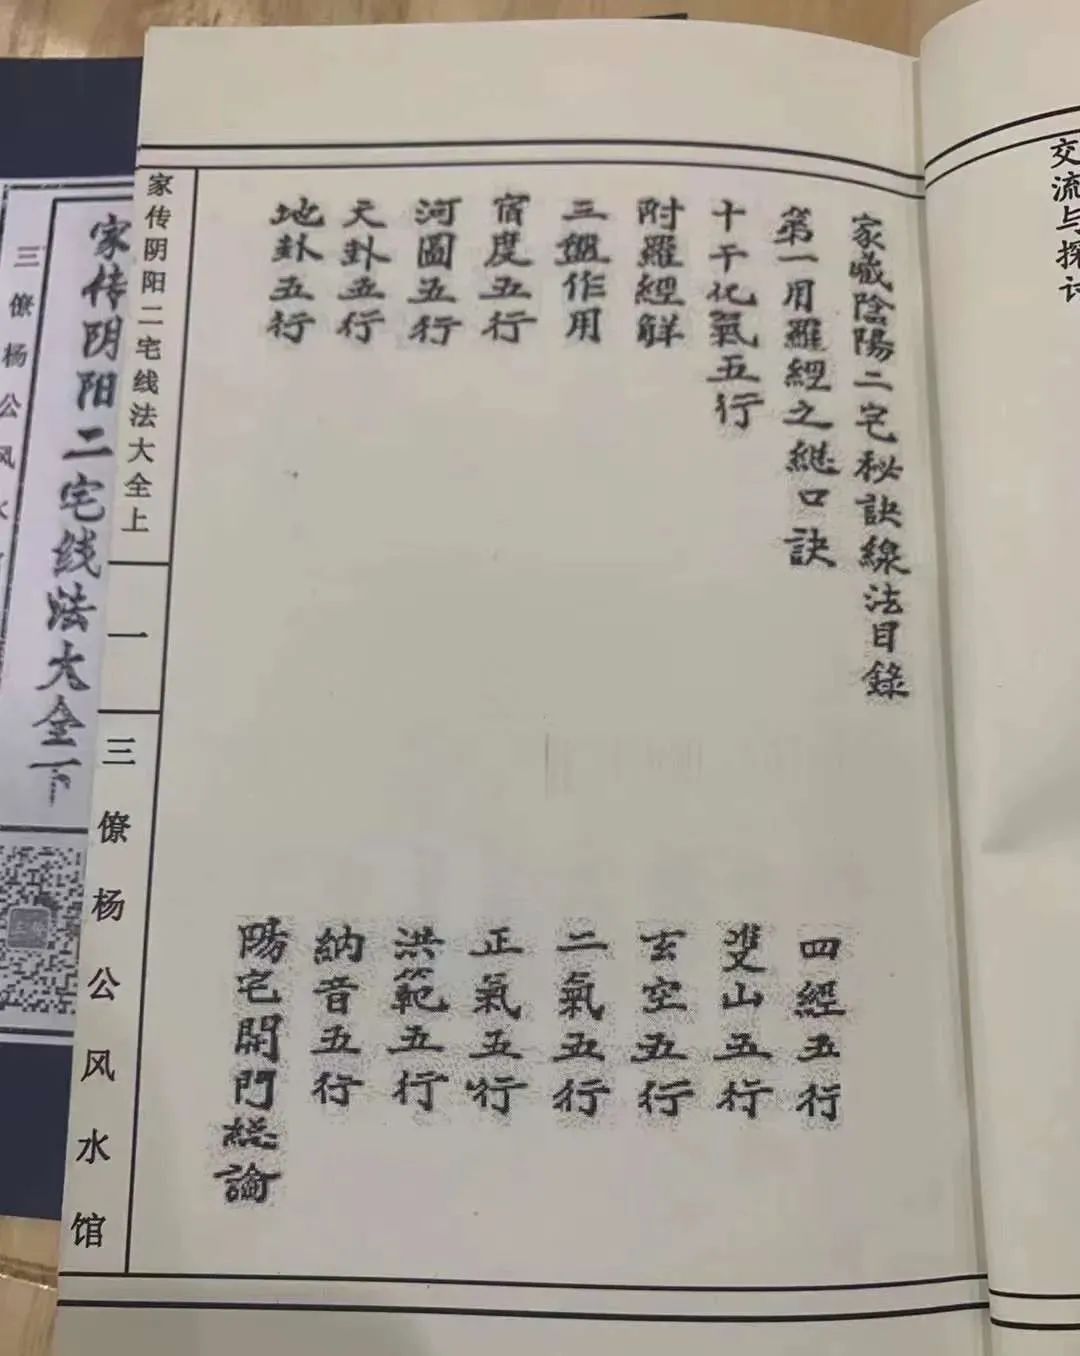 家藏陰陽二宅秘訣線法目錄
第一用羅經之總口訣
十干化氣五行
附羅經解
三盤作用
宿度五行
河圖五行
天卦五行
地卦五行
四經五行
雙山五行
玄空五行
二氣五行
正氣五行
洪範五行
納音五行
陽宅開門總論
家传阴阳二宅线法大全上
一
三僚杨公风水馆
家传阴阳二宅线法大全下
三僚杨公风水
交流与探讨